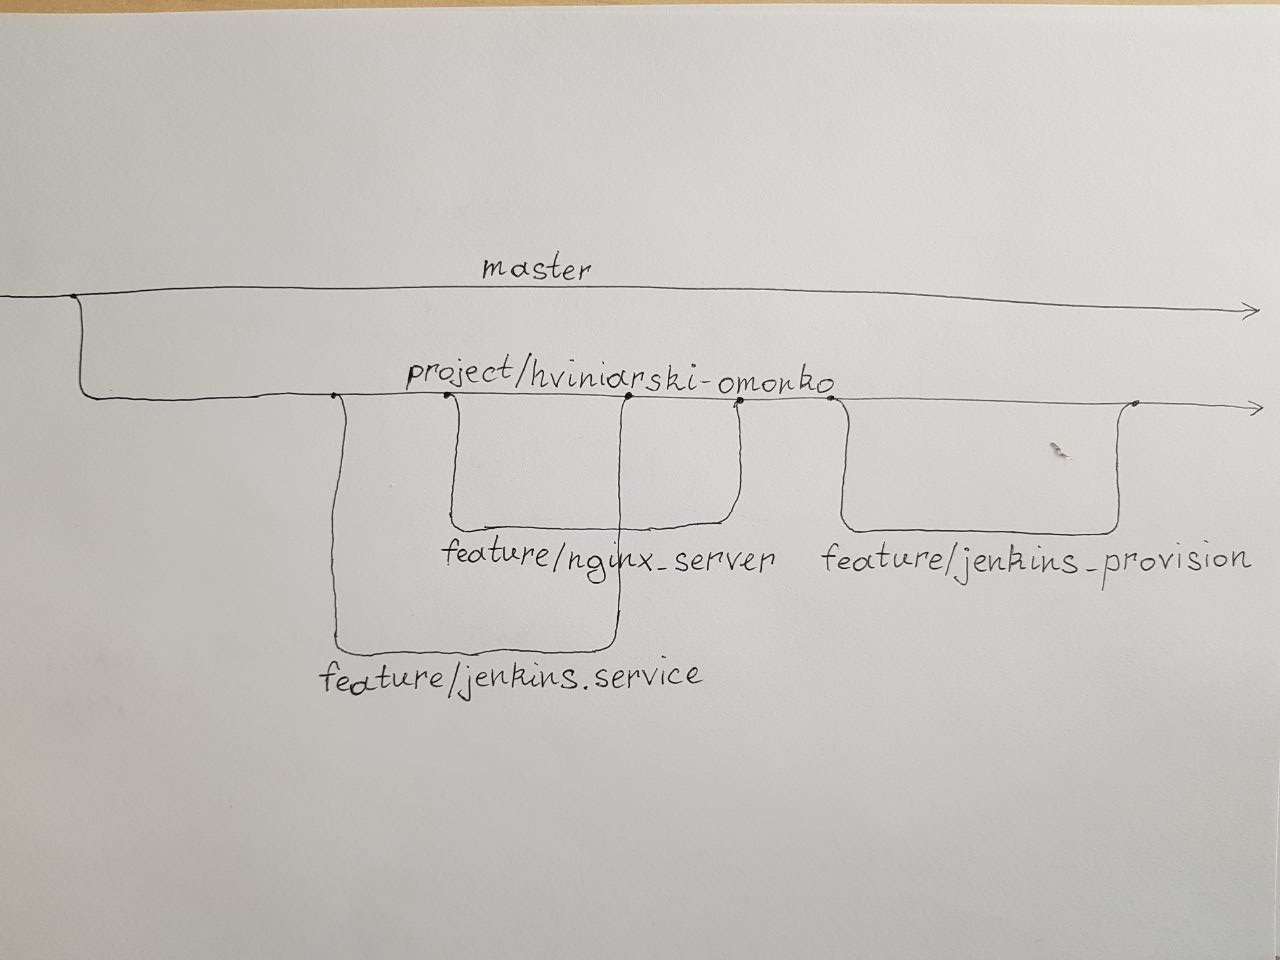 master
project/hviniarski-omonko
feature/nginx_server
feature/jenkins_provision
feature/jenkins.service